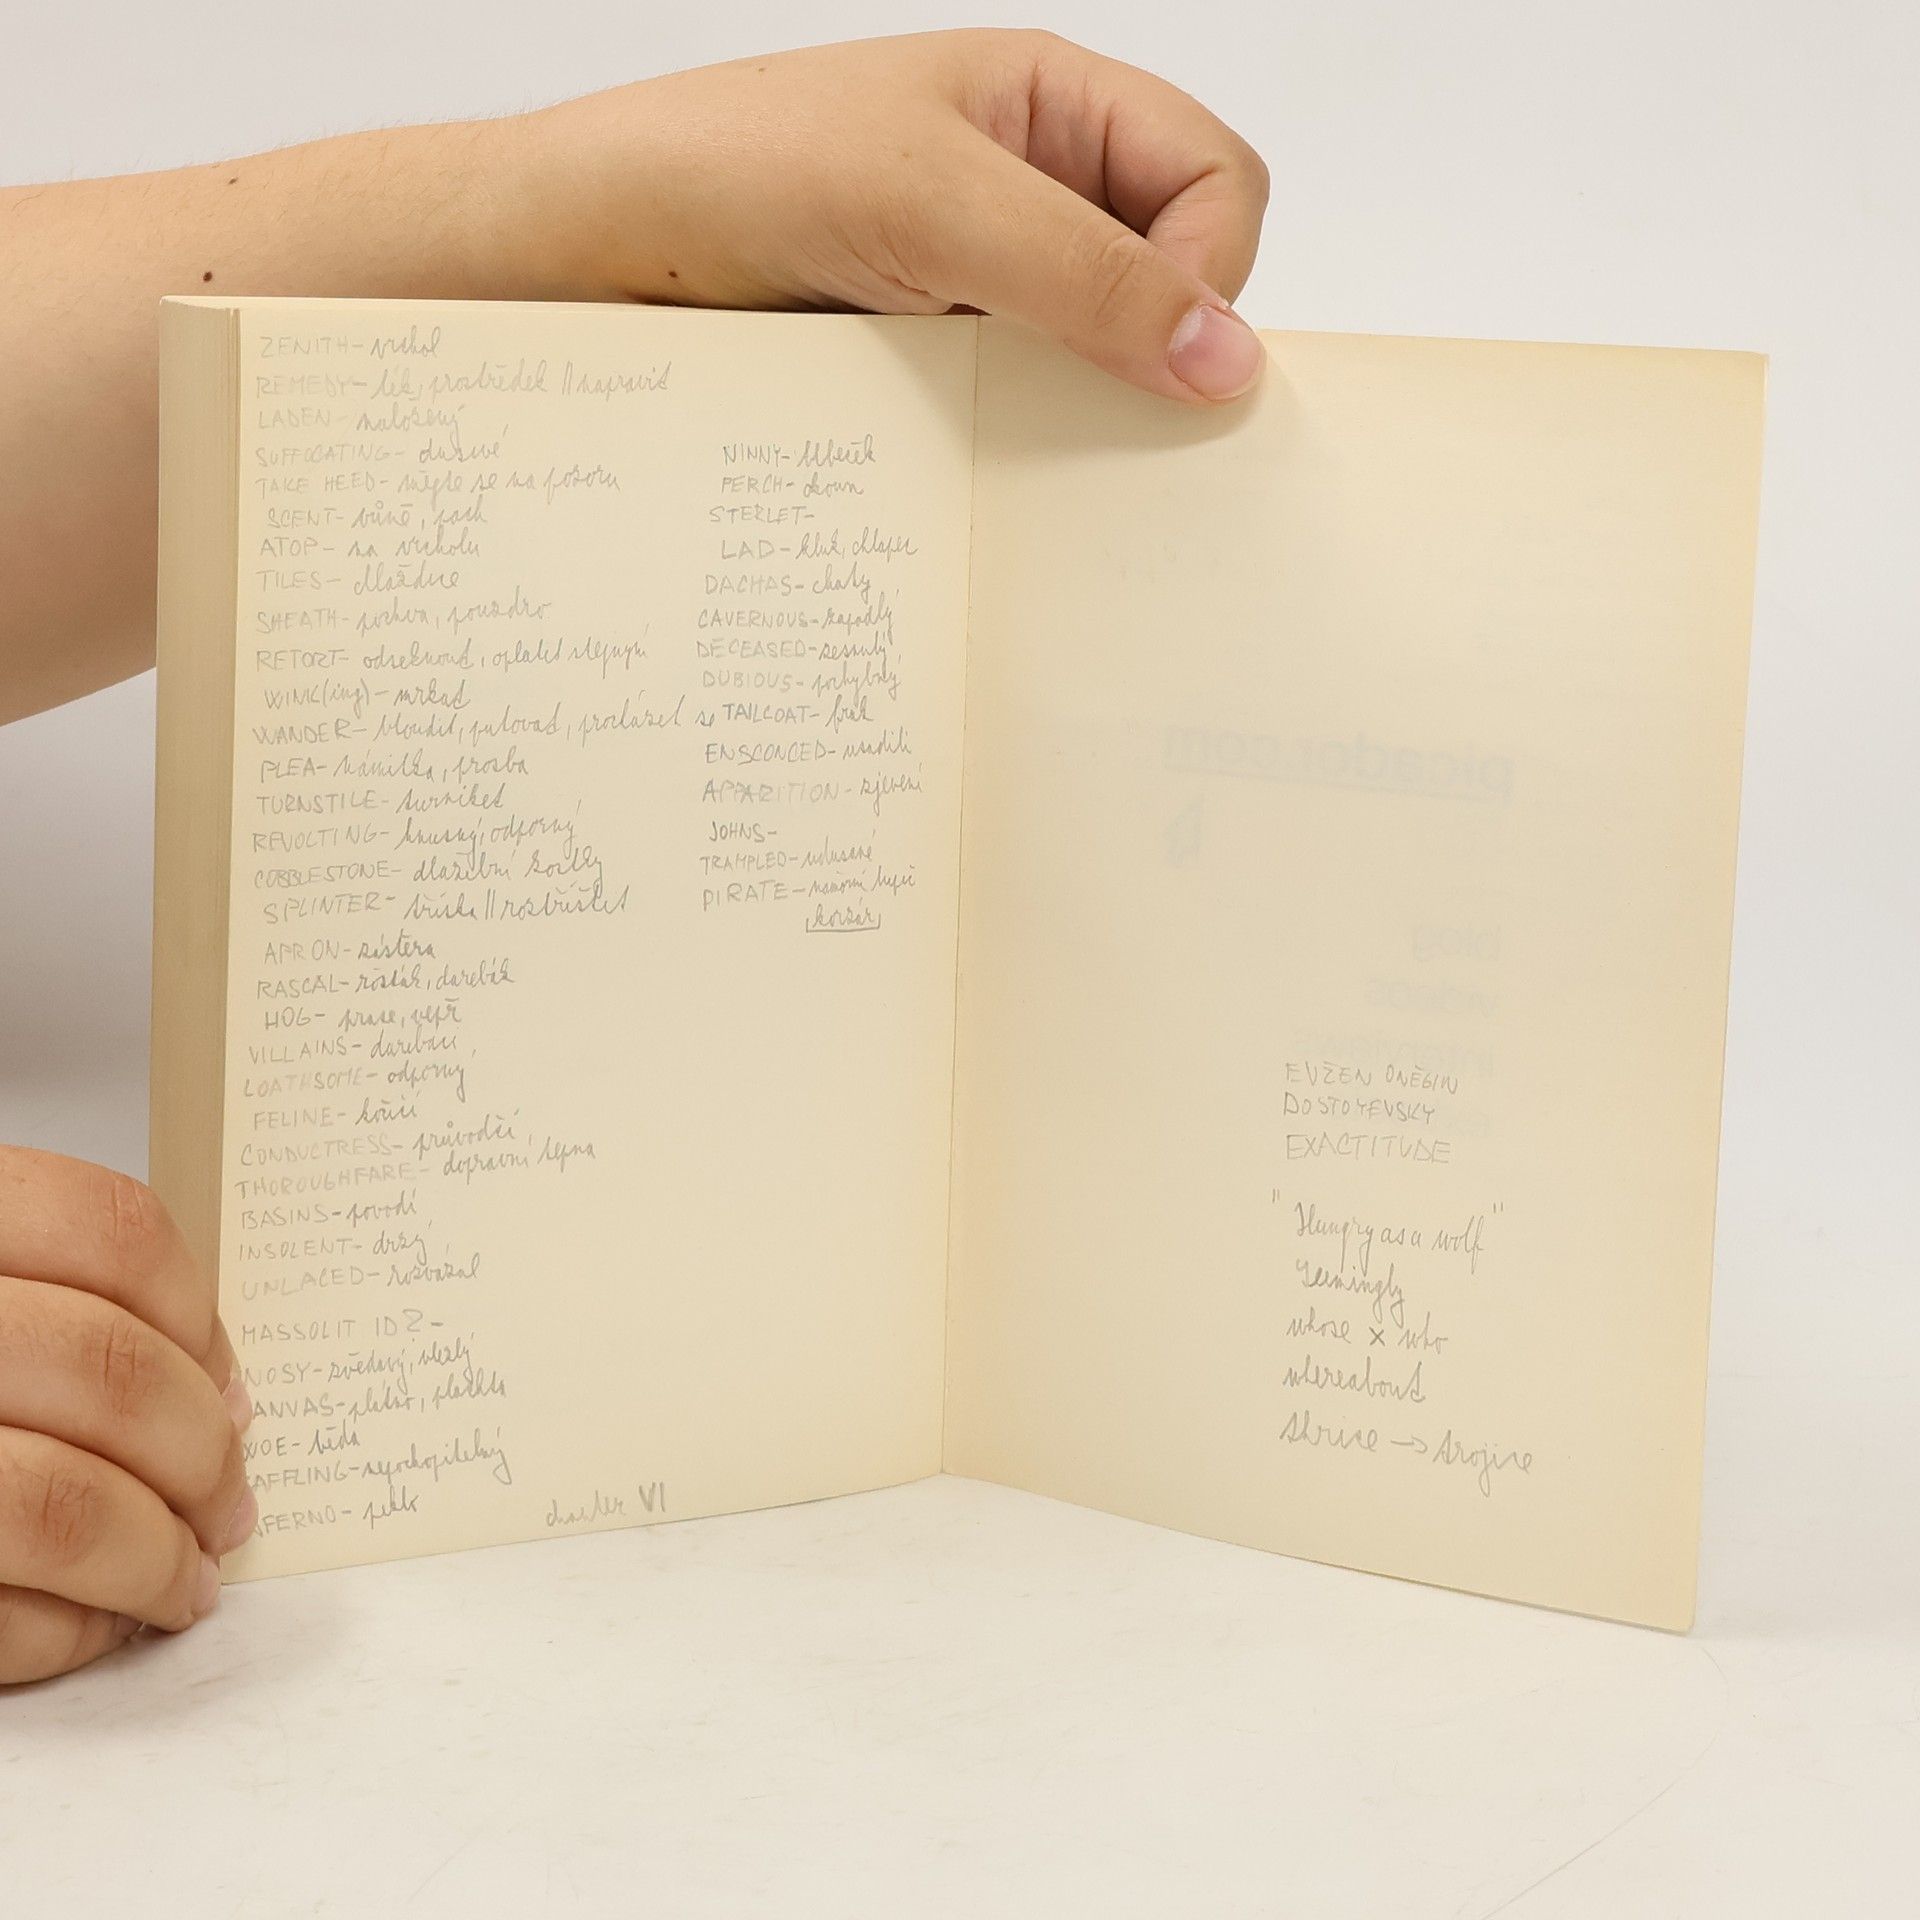 ZENITH - vrchol
REMEDY - lék, prostředek || napravit
LADEN - naložený
SUFFOCATING - dusivé
TAKE HEED - mějte se na pozoru
SCENT - vůně, pach
ATOP - na vrcholu
TILES - dlaždice
SHEATH - pochva, pouzdro
RETORT - odseknout, oplatit stejným
WINK(ing) - mrkat
WANDER - bloudit, putovat, procházet se
PLEA - námitka, prosba
TURNSTILE - turniket
REVOLTING - hnusný, odporný
COBBLESTONE - dlažební kostky
SPLINTER - tříska || roztříštit
APRON - zástěra
RASCAL - rošťák, darebák
HOG - prase, vepř
VILLAINS - darebáci
LOATHSOME - odporný
FELINE - kočičí
CONDUCTRESS - průvodčí
THOROUGHFARE - dopravní tepna
BASINS - povodí
INSOLENT - drzý
UNLACED - rozvázal
MASSOLIT ID? -
NOSY - zvědavý, vlezlý
ANVAS - plátno, plachta
WOE - běda
AFFLING - nepochopitelný
NFERNO - peklo
chapter VI
NINNY - blbeček
PERCH - okoun
STERLET -
LAD - kluk, chlapec
DACHAS - chaty
CAVERNOUS - zapadlý
DECEASED - zesnulý
DUBIOUS - pochybný
TAILCOAT - frak
ENSCONCED - usadili
APPARITION - zjevení
JOHNS -
TRAMPLED - udusané
PIRATE - námořní lupič
korzár
picador.com
blog
videos
interviews
EVŽEN ONĚGIN
DOSTOYEVSKY
EXACTITUDE
"Hungry as a wolf"
Seemingly
whose × who
whereabout
thrice → trojice